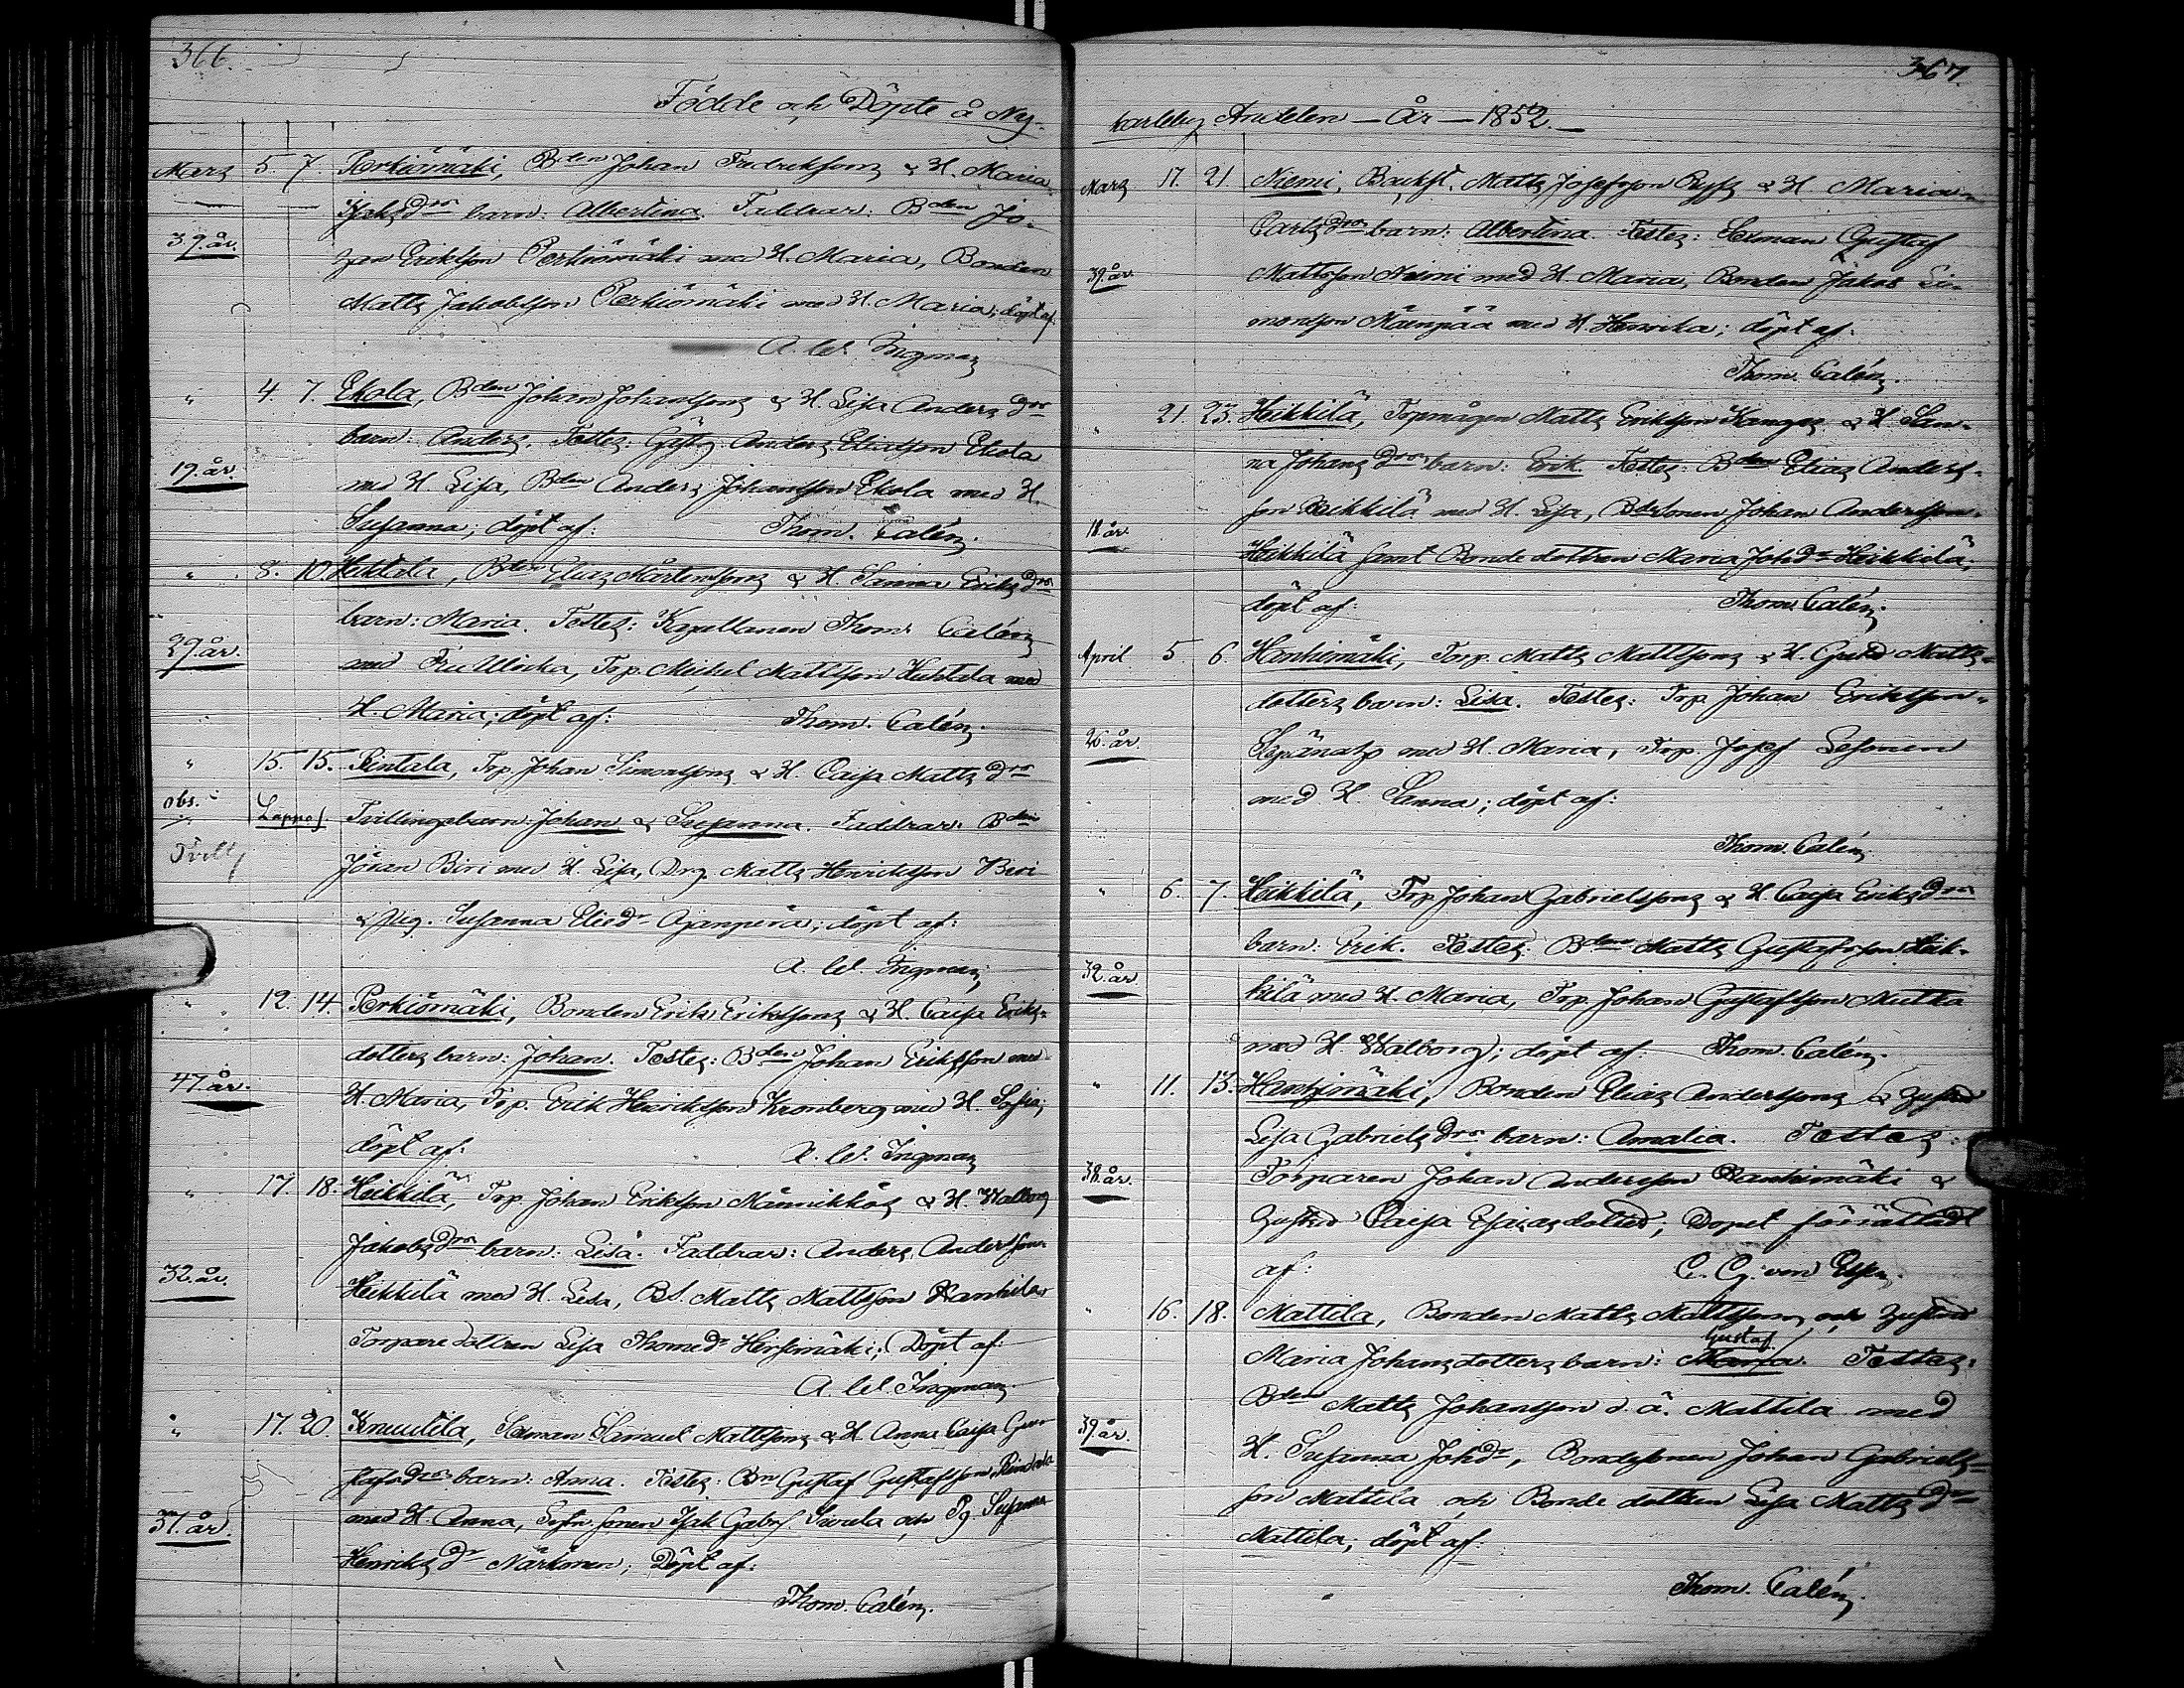 366.
Födde och Döpte å Ny-
Mars 5. 7. Perkiömäki, Bden Johan Fredrikssons & H. Maria
Isaksdrs barn: Albertina. Faddrar: Bden Jö-
39. år.
ran Eriksson Perkiömäki med H. Maria, Bonden
Matts Jakobsson Perkiömäki med H. Maria; döpt af:
A. W. Ingman
" 4. 7. Ekola, Bden Johan Johanssons & H. Lisa Anders drs
barn: Anders. Testes: Anders Eliasson Ekola
19. år.
med H. Lisa, Bden Anders Johansson Ekola med H.
Susanna; döpt af: Thom. Calén.
" 8. 10. Huhtala, Bden Elias Mårtenssons & H. Sanna Eriks drs
barn: Maria. Testes: Kapellanen Thom. Calén
29. år.
med Fru Ulrika, Trp. Michel Mattsson Huhtala med
H. Maria; döpt af: Thom. Calén.
" 15. 15. Rintala, Trp. Johan Simonssons & H. Caisa Matts drs
obs. Lappo s. Tvillingebarn: Johan & Susanna. Faddrar: Bden
Tvill
Jöran Biri med H. Lisa, Drg. Matts Henriksson Biri
& Pig. Susanna Elied. Ojanperä; döpt af:
A. W. Ingman
" 12. 14. Perkiömäki, Bonden Erik Erikssons & H. Caisa Eriks-
dotters barn: Johan. Testes: Bden Johan Eriksson med
47. år.
H. Maria, Trp. Erik Henriksson Kronberg med H. Sofia;
döpt af: A. W. Ingman
" 17. 18. Heikkilä, Trp. Johan Eriksson Männikkös & H. Walborg
Jakobs drs barn: Lisa. Faddrar: Anders Andersson
32. år.
Heikkilä med H. Lisa, BS. Matts Mattsson Rankila
Torparedottren Lisa Thomedr Hirsimäki; Döpt af:
A. W. Ingman
" 17. 20. Knuutila, Sexman Samuel Mattssons & H. Anna Caisa Gu-
stafs drs barn: Anna. Testes: Bn Gustaf Gustafsson Rindala
31. år.
med H. Anna, sonen Isak Gabrs. Sivula och Pg Susanna
Henriks dr Närkönen; Döpt af:
Thom. Calén.
367.
karleby Andelen – År – 1852.
Mars 17. 21. Niemi, Backst. Matts Josefsson Ryss & H. Maria
Carls drs barn: Albertina. Testes: Sexman Gustaf
39. år
Mattsson Niemi med H. Maria, Bonden Jakob Si-
monsson Näenpää med H. Henrika; döpt af:
Thom. Calén.
" 21. 23. Heikkilä, Torpmågen Matts Eriksson Kangas & H. San-
na Johans drs barn: Erik. Testes: Bden Elias Anders-
18. år.
son Heikkilä med H. Lisa, Bdesonen Johan Andersson
Heikkilä samt Bonde dottren Maria Johdr Heikkilä;
döpt af: Thom. Calén.
April 5. 6. Hanhimäki, Torp. Matts Mattssons & H. Gretha Matts-
dotters barn: Lisa. Testes: Trp. Johan Eriksson
26. år.
med H. Maria, Trp. Josef Lesonen
med H. Sanna; döpt af:
Thom. Calén.
" 6. 7. Heikkilä, Trp. Johan Gabrielssons & H. Caisa Eriks drs
barn: Erik. Testes: Bden Matts Gustafsson Heik-
32. år
kilä med H. Maria, Trp. Johan Gustafsson Mutka
med H. Walborg; döpt af: Thom. Calén.
" 11. 13. Hanhimäki, Bonden Elias Anderssons & hustru
Lisa Gabriels drs barn: Amalia. Testes:
38. år.
Torparen Johan Andersson Hanhimäki &
hustru Caisa Esaias dotter; Dopet förrättadt
af: C. G. von Essen.
" 16. 18. Mattila, Bonden Matts Mattssons och hustru
Maria Johansdotters barn: Maria Gustaf. Testes:
Bden Matts Johansson d. ä. Mattila med
39. år.
H. Susanna Johdr, Bondesonen Johan Gabriels-
son Mattila och Bonde dottren Lisa Matts dr
Mattila; döpt af:
Thom. Calén.